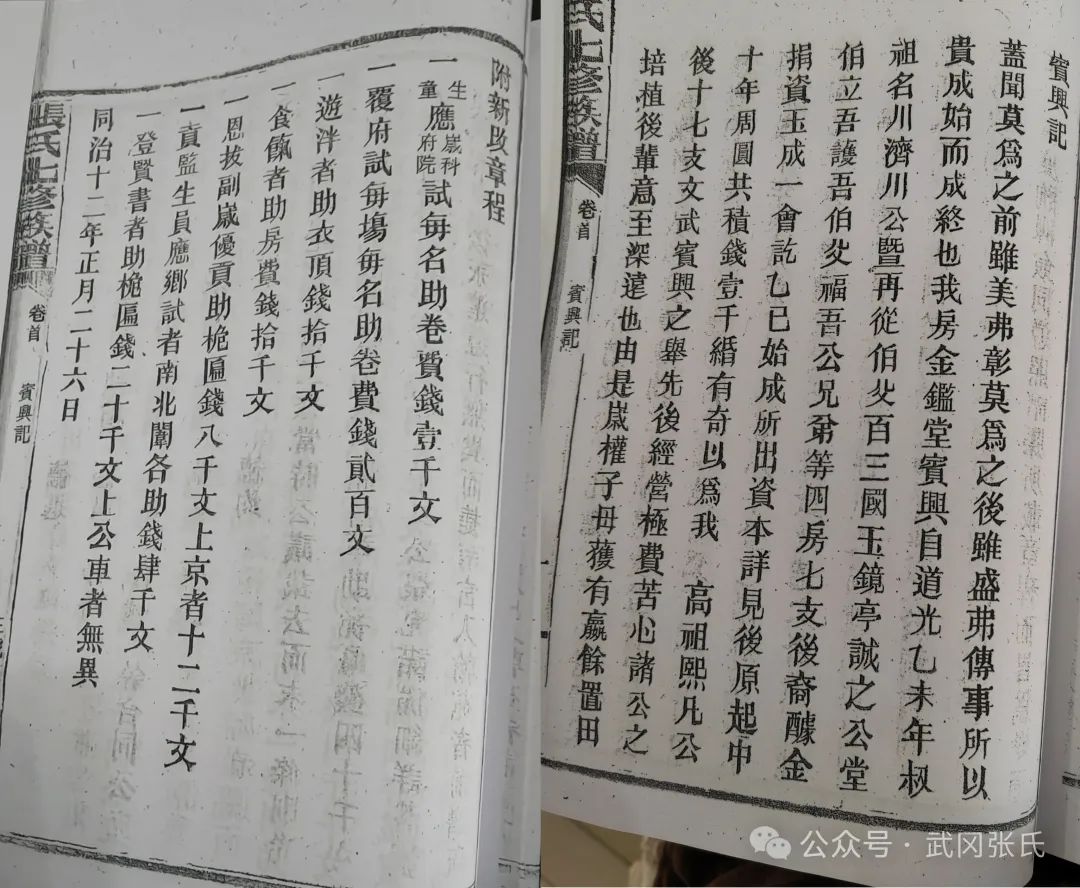 賓興記
蓋聞莫爲之前雖美弗彰莫爲之後雖盛弗傳事所以
貴成始而成終也我房金鑑堂賓興自道光乙未年叔
祖名川濟川公曁再從伯父百三國玉鏡亭誠之公堂
伯立吾護吾伯父福吾公兄弟等四房七支後裔醵金
捐資玉成一會訖乙巳始成所出資本詳見後原起中
十年周圓共積錢壹千緡有奇以爲我 高祖熙凡公
後十七支文武賓興之舉先後經營極費苦心諸公之
培植後輩意至深遠也由是嵗權子母獲有贏餘置田
氏七修族譜 卷首 賓興記
附新改章程
一生童應嵗科府院試每名助卷費錢壹千文
一覆府試每塲每名助卷費錢貳百文
一遊泮者助衣頂錢拾千文
一食餼者助房費錢拾千文
一恩拔副嵗優貢助桅匾錢八千文上京者十二千文
一貢監生員應鄉試者南北闈各助錢肆千文
一登賢書者助桅匾錢二十千文上公車者無異
同治十二年正月二十六日
張氏七修族譜 卷首 賓興記
公众号·武冈张氏